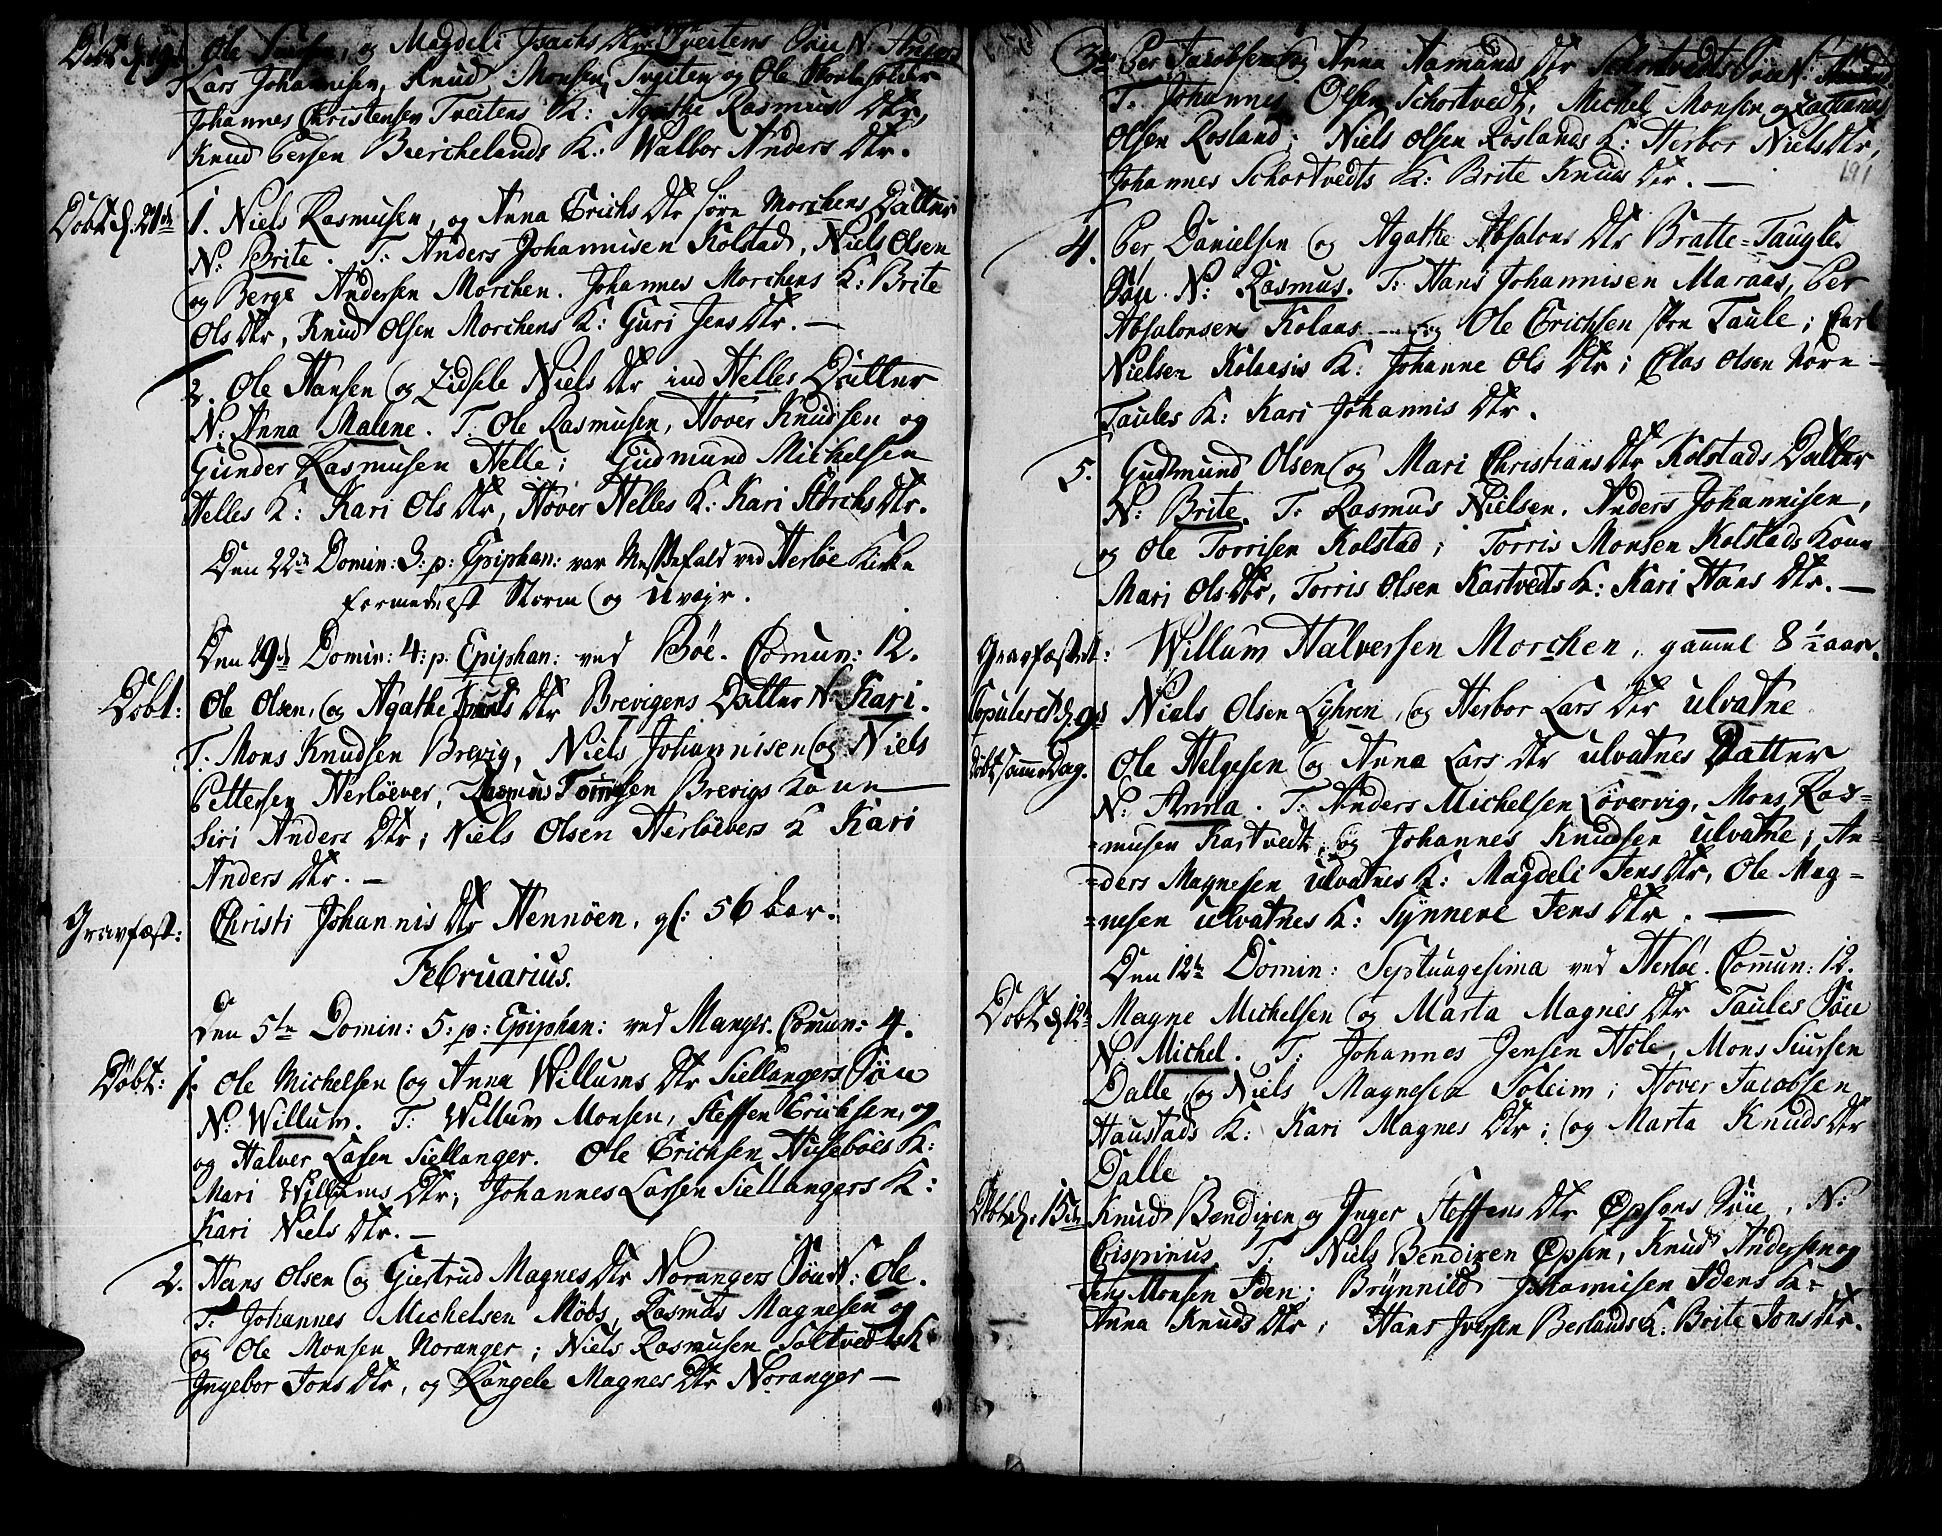 Døbt d. 19d Ole Knudsen, og Magdeli Isachs Dtr Tveitens Søn N. Anders
Lars Johannisen, Knud Monsen Tveiten og Ole
Johannes Christensen Tveitens K: Agathe Rasmus Dtr,
Knud Persen Berchelands K: Walbor Anders Dtr.
Døbt d. 21de 1. Niels Rasmusen, og Anna Erichs Dtr søre Morchens Datter
N: Brite. T: Anders Johannisen Kolstad, Niels Olsen
og Berge Andersen Morchen. Johannes Morchens K: Brite
Ols Dtr, Knud Olsen Morchens K: Guri Jens Dtr. —
2. Ole Hansen og Zidsele Niels Dtr ind Helles Datter
N: Anna Malene. T. Ole Rasmusen, Hover Knudsen og
Gunder Rasmusen Helle; Gudmund Michelsen
Helles K: Kari Ols Dtr, Hover Helles K: Kari Størchs Dtr.
Den 22de Domin: 3. p: Epiphan: var Messefald ved Herløe Kirke
formedelst Storm og Uvejr.
Den 29d Domin: 4: p: Epiphan: ved Bøe. Comun: 12.
Døbt: Ole Olsen, og Agathe Knuds Dtr Brevigens Datter N. Kari.
T. Mons Knudsen Brevig, Niels Johannisen og Niels
Pettersen Herløever, Rasmus Brevigs Kone
Siri Anders Dtr; Niels Olsen Herløevers K Kari
Anders Dtr. —
Gravfæst: Christi Johannis Dtr Hennøen, gl: 56 aar.
Februarius.
Den 5te Domin: 5: p: Epiphan: ved Manger. Comun: 4.
Døbt: 1. Ole Michelsen og Anna Willums Dtr Siellangers Søn
N: Willum. T: Willum Monsen, Steffen Erichsen, og
og Halver Lasen Siellanger. Ole Erichsen Husebøes K:
Mari Willums Dtr; Johannes Larsen Siellangers K:
Kari Niels Dtr. —
2. Hans Olsen og Giertrud Magnes Dtr Norangers Søn N: Ole.
T. Johannes Michelsen Møbs, Rasmus Magnesen og
og Ole Monsen Noranger; Niels Rasmusen Toltvedts K:
Ingebor Jons Dtr, og Rangele Magnes Dtr Noranger —
3. Per Jacobsen og Anna Aamunds Dtr Schortvedts Søn N:
T. Johannes Olsen Schortvedt, Michel Monsen og Zacharias
Olsen Rosland; Niels Olsen Roslands K: Herbor Niels Dtr,
Johannes Schortvedts K: Brite Knuds Dtr. —
191
4. Per Danielsen og Agathe Absalons Dtr Bratte=Taugles
Søn. N: Rasmus. T: Hans Johannisen Maraas, Per
Absalonsen Kolaas — og Ole Erichsen søre Taule; Carl
Nielsen Kolaasis K: Johanne Ols Dtr; Clas Olsen Nore-
Taules K: Kari Johannis Dtr.
5. Gudmund Olsen og Mari Christians Dtr Kolstads Datter
N: Brite. T. Rasmus Nielsen, Anders Johannisen,
og Ole Torrisen Kolstad; Torris Monsen Kolstads Kone
Mari Ols Dtr, Torris Olsen Kartvedts K: Kari Hans Dtr. —
Gravfæstet: Willum Halversen Morchen, gammel 8 ½ aar.
Copuleret d. 9d Niels Olsen Lyhren, og Herbor Lars Dtr Ulvatne
Døbt samme Dag. Ole Helgesen og Anna Lars Dtr Ulvatnes Datter
N: Anna. T: Anders Michelsen Løvervig, Mons Ras=
=musen Kartvedt, og Johannes Knudsen Ulvatne; An=
=ders Magnesen Ulvatnes K: Magdeli Jens Dtr, Ole Mag=
=nesen Ulvatnes K: Synneve Jens Dtr. —
Den 12te Domin: Septuagesima ved Herløe. Comun: 12.
Døbt d. 12te Magne Michelsen og Marta Magnes Dtr Taules Søn
N. Michel. T: Johannes Jensen Hole, Mons Siursen
Dalle og Niels Magnesen Soleim; Hover Jacobsen
Haustads K: Kari Magnes Dtr; og Marta Knuds Dtr
Dalle
Døbt d. 15de Knud Bendixen og Inger Steffens Dtr Øpsens Søn, N:
Crispinus. T. Niels Bendixen Øpsen, Knud Andersen og
Jens Monsen Iden; Brynnild Johannisen Idens K=
Anna Knuds Dtr, Hans Iversen Berlands K: Brite Jons Dtr.